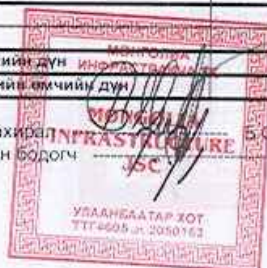 ийн дүн
ийн өмчийн дүн
МОНГОЛИА
ИНФРАСТРАКЧЕ
MONGOLIA
INFRASTRUCTURE
JSC
ахирал
н бодогч
УЛААНБААТАР ХОТ